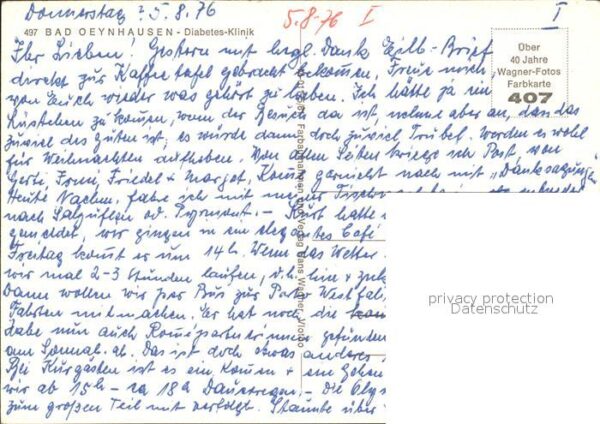 Donnerstag, 5.8.76
5.8.76 I
I
497 BAD OEYNHAUSEN - Diabetes-Klinik
Ihr Lieben! Gestern mit hrzl. Dank Eilb-Brief
direkt zur Kaffeetafel gebracht bekommen. Freue mich,
von Euch wieder was gehört zu haben. Ich hätte ja im
kommen, wenn der Besuch da ist, nehme aber an, dass das
zuviel des guten ist, es würde dann doch zuviel Trubel. Werden es wohl
für Weihnachten aufheben. Von allen Seiten kriege ich Post, von
Friedel + Margot, komme garnicht nach mit "Danksagungen"
Heute Nachm. fahre ich mit meiner
nach Salzuflen od. Pyrmont. - Kurt hatte
gemeldet, wir gingen in ein elegantes Café
Freitag kommt er um 14 h. Wenn das Wetter
wir mal 2-3 Stunden laufen, d.h. hin + zurück
Dann wollen wir per Bus zur Porta Westfal
Fahrten mitmachen. Er hat noch die
habe nun auch gefunden
am Sonnab. ab. Das ist doch etwas anderes
Bei Kurgästen ist es ein Kommen + ein Gehen
wir ab 15 h - ca 18 h Dauerregen. - Die Olym
zum großen Teil mit verfolgt. Staunte über
Über
40 Jahre
Wagner-Fotos
Farbkarte
407
und Verlag Hans Wagner, Vlotho
privacy protection
Datenschutz